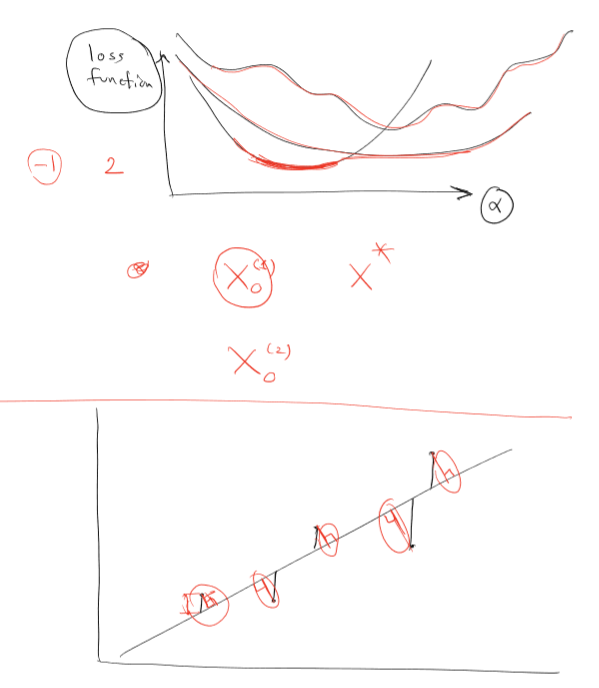 loss
function
-1 2
α
X₀⁽¹⁾ X*
X₀⁽²⁾